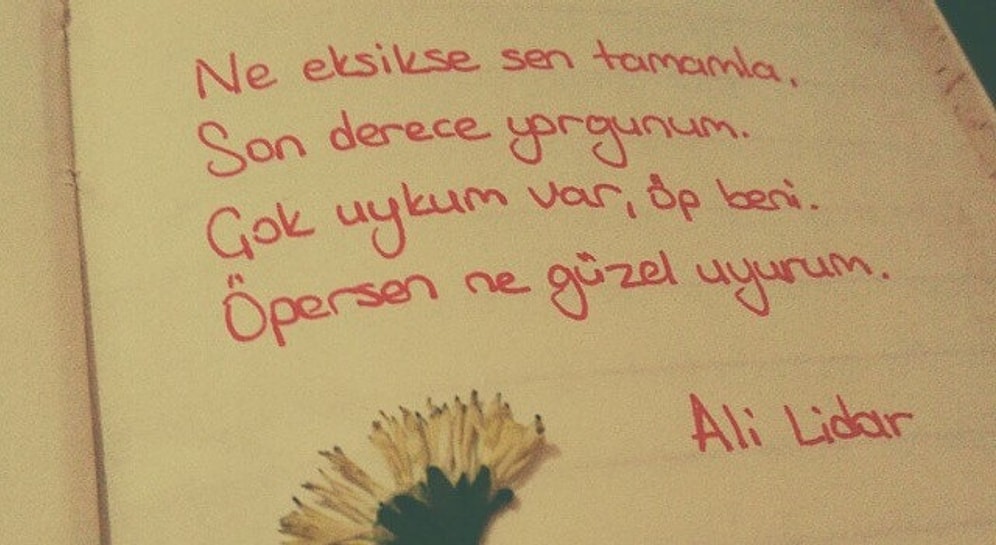 Ne eksikse sen tamamla,
Son derece yorgunum.
Çok uykum var, öp beni.
Öpersen ne güzel uyurum.
Ali Lidar